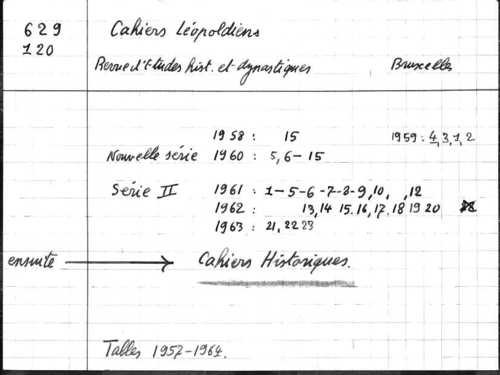 629 Cahiers Léopoldiens
120
Revue d'Etudes hist. et dynastiques Bruxelles
1958 : 15 1959 : 4, 3, 1, 2
Nouvelle série 1960 : 5, 6 - 15
Série II 1961 : 1 - 5 - 6 - 7 - 8 - 9, 10, , 12
1962 : 13, 14 15. 16, 17. 18 19 20
1963 : 21, 22 23
ensuite → Cahiers Historiques.
Tables 1957-1964.